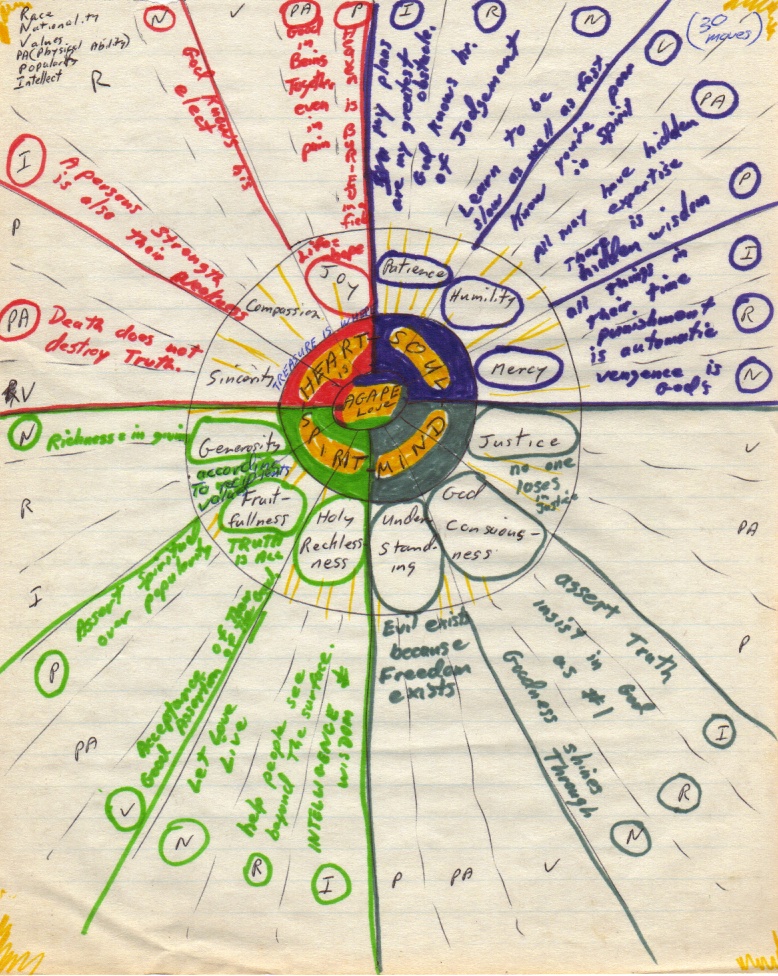 Race
Nationality
Values
PA (Physical Ability)
Popularity
Intellect
R
N
V
PA
P
I
R
N
V
(30
PA
P
I
R
N
God knows his
elect
God
in
Being
Together
even
in
pain
are my plans
are my greatest
obstacle.
God knows hr.
of Judgement
Learn to be
slow as well as fast.
Know you're poor
in spirit
All may have hidden
expertise
There is
hidden wisdom
all things in
their time
punishment
is automatic
vengence is
Gods
I
A persons Strength
is also their
P
PA
Death does not
destroy Truth.
V
Joy
Compassion
Sincerity
TREASURE IS
Patience
Humility
Mercy
HEART
IS
SOUL
AGAPE
Love
SPIRIT-MIND
N
Richness in giving
Generosity
according
to recipients
value
Fruit-
fullness
TRUTH
IS ALL
Holy
Reckless
ness
Under
Stand-
ing
God
Conscious-
ness
Justice
no one
loses
in
Justice
R
I
P
Assert Spiritual
over popularity
PA
V
Acceptance of
Good Assertion of
N
Let Love
Live
R
help people see
beyond The surface.
I
INTELLIGENCE ≠
WISDOM
Evil exists
because
Freedom
exists
P
PA
V
N
Goodness shines
Through
R
assert Truth
insist in God
as #1
I
P
PA
V